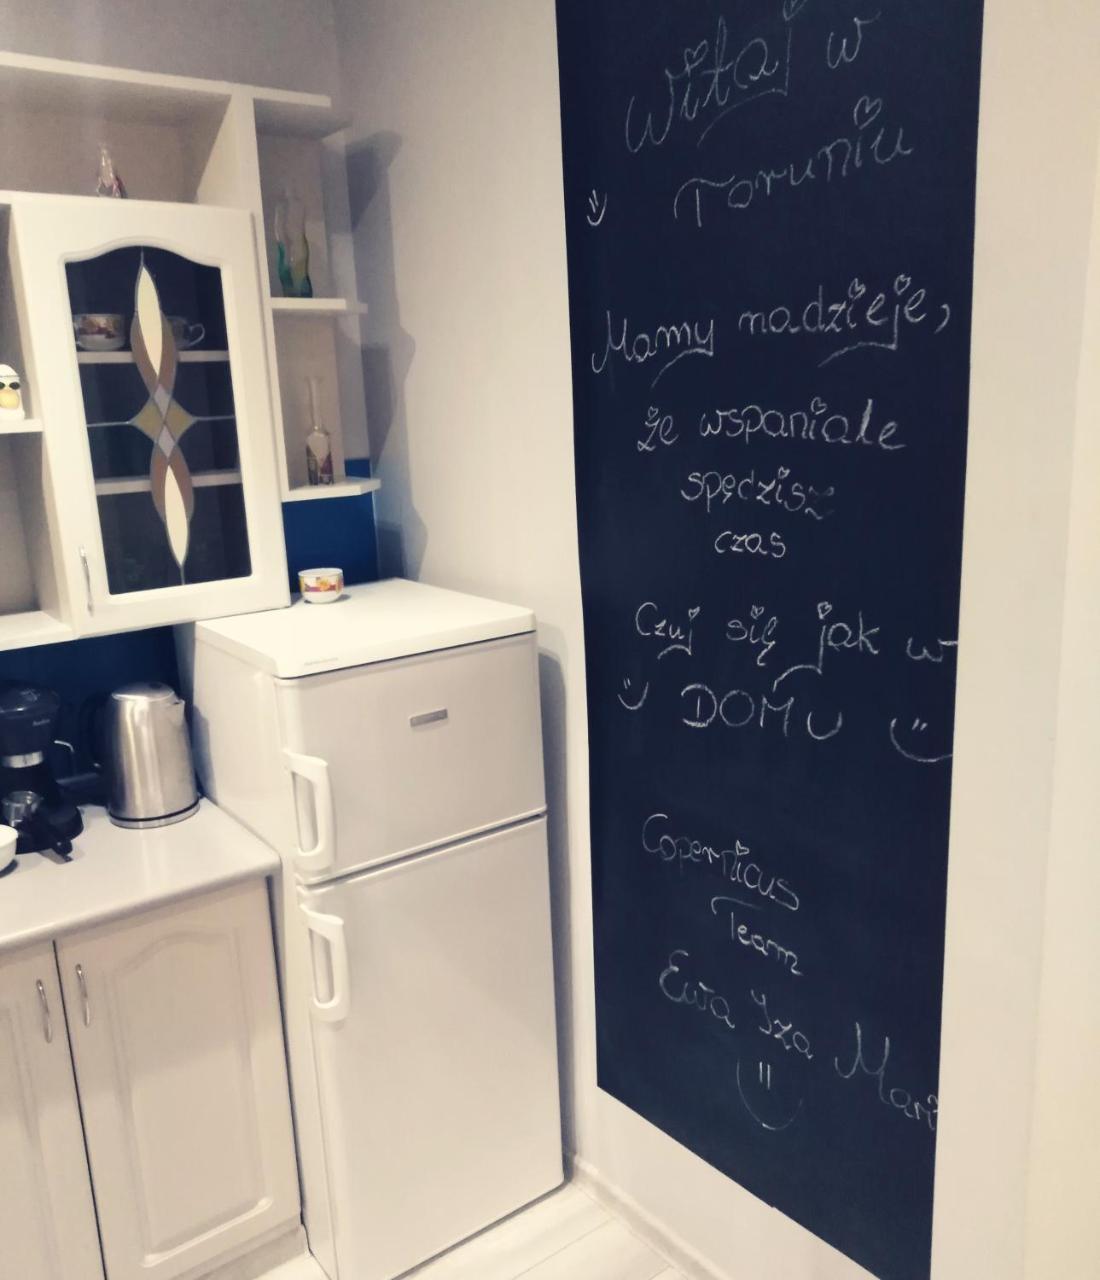 Witaj w
Toruniu
Mamy nadzieje,
że wspaniale
spędzisz
czas
Czuj się jak w
DOMU
Copernicus
Team
Ewa Iza